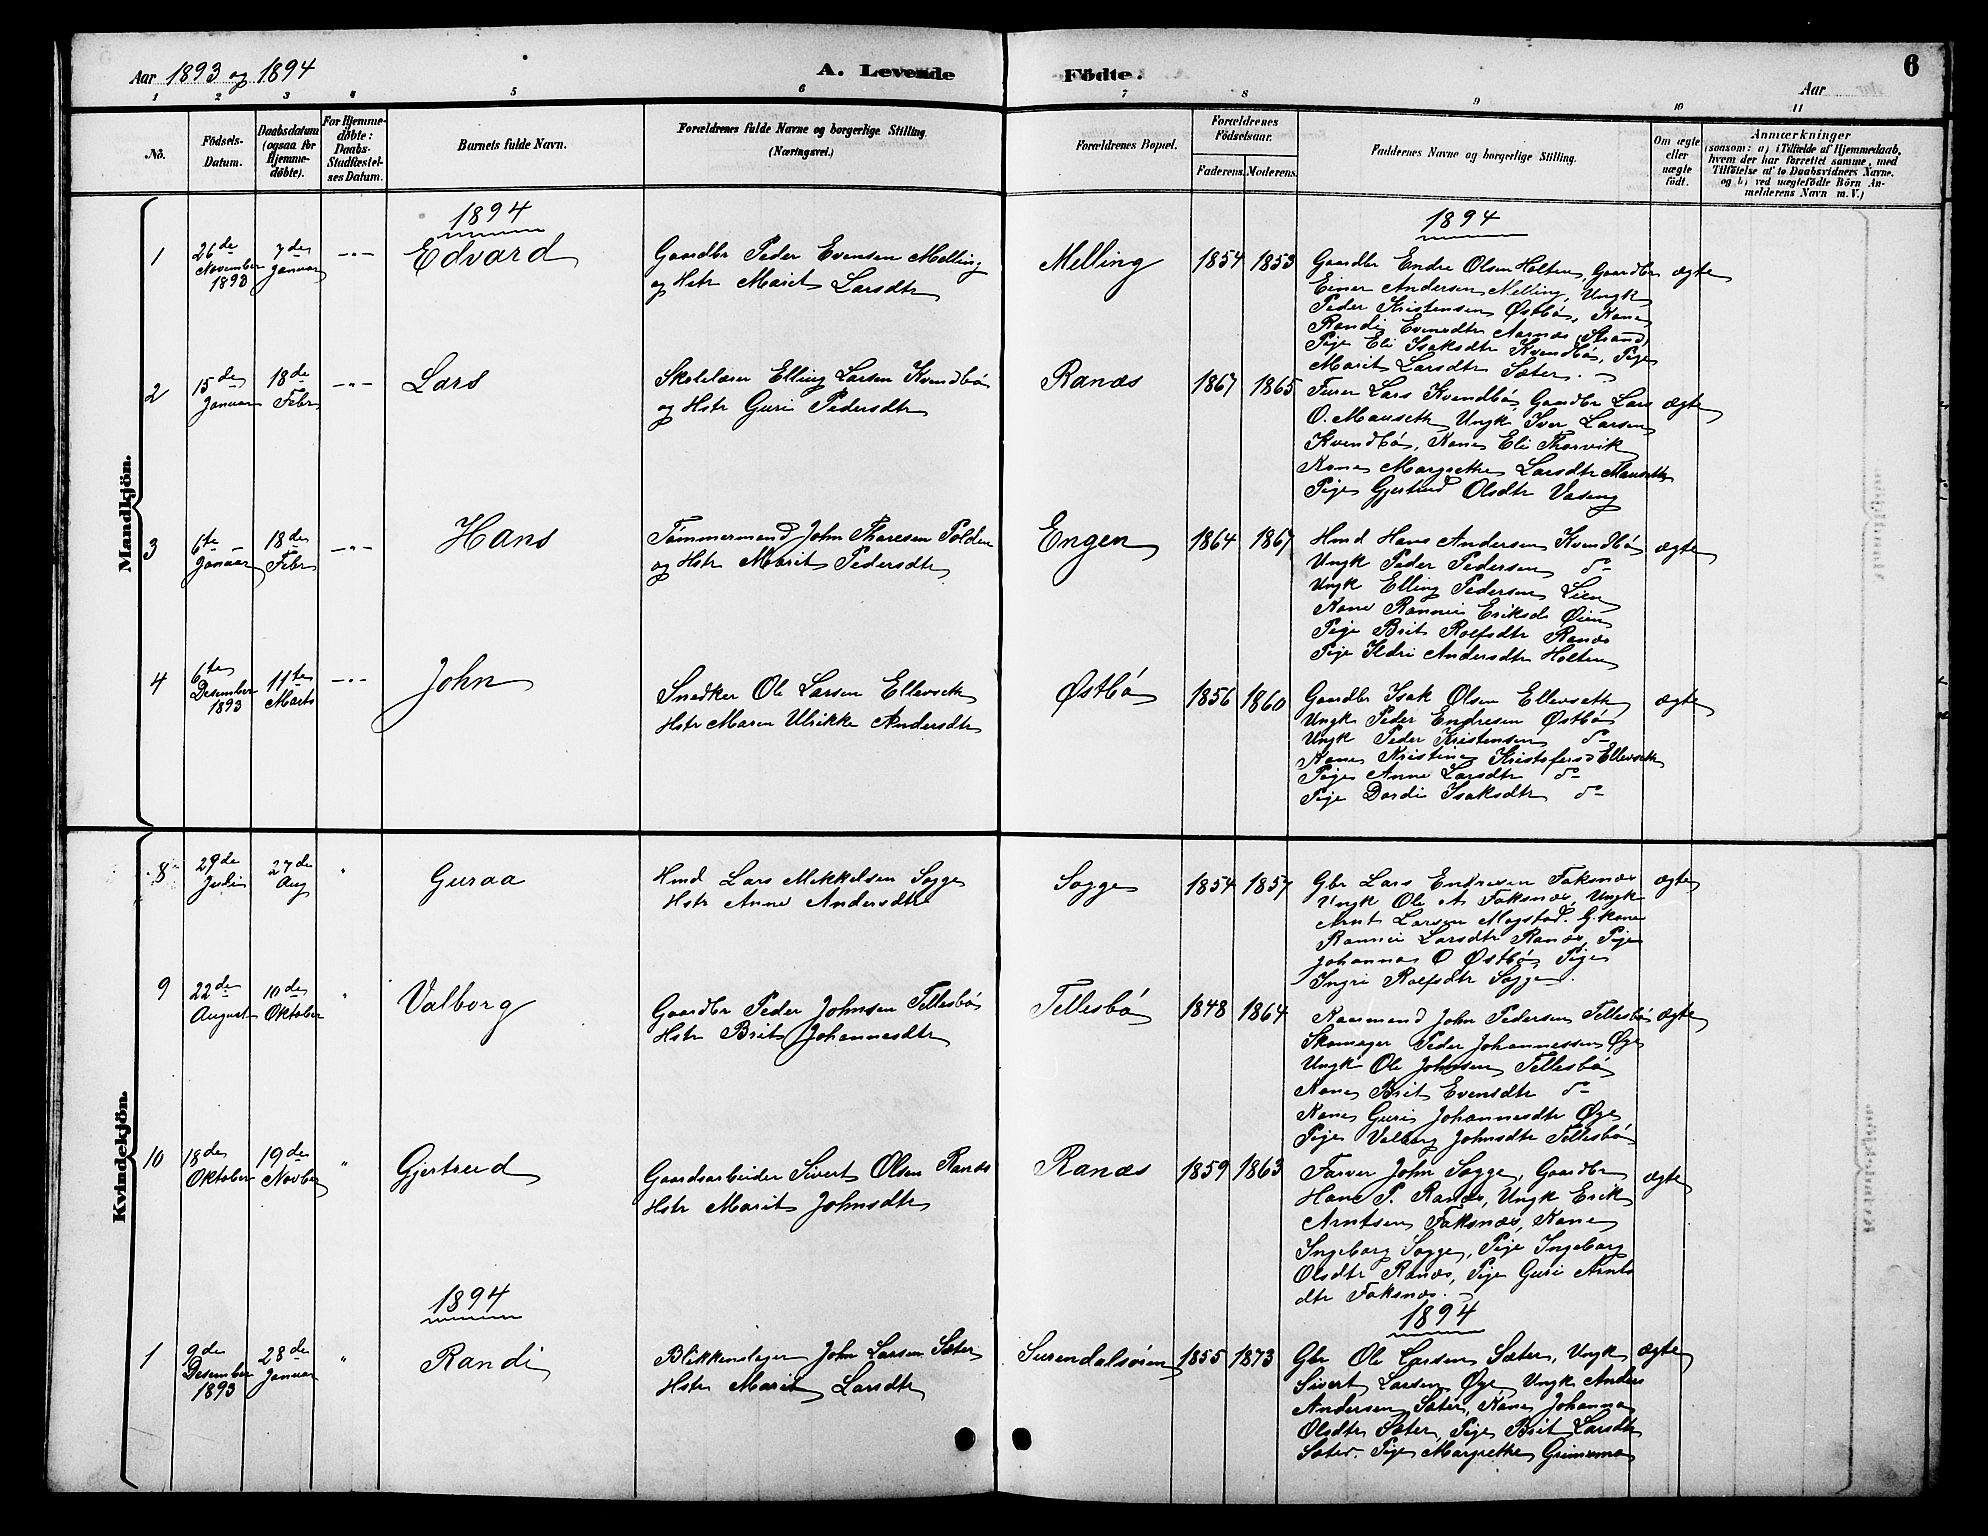 Aar 1893 og 1894
A. Levende Födte.
6
Aar
1 2 3 4 5 6 7 8 9 10 11
No.
Födsels-Datum.
Daabsdatum (ogsaa for Hjemme-döbte).
For Hjemme-döbte: Daabs-Stadfæstel-ses Datum.
Barnets fulde Navn.
Forældrenes fulde Navne og borgerlige Stilling.
(Næringsvei.)
Forældrenes Bopæl.
Forældrenes Födselsaar.
Faderens. Moderens.
Faddernes Navne og borgerlige Stilling.
Om ægte eller uægte födt.
Anmærkninger
(saasom: a) i Tilfælde af Hjemmedaab,
hvem der har forrettet samme, med
Tilföielse af to Daabsvidners Navne.
og b) ved uægtefödte Börn An-
melderens Navn m. V.)
Mandkjön.
1894
1894
1
26de November 1893
7de Januar
Edvard
Gaardbr Peder Evensen Melling
og Hstr Marit Larsdtr
Melling
1854 1853
Gaardbr Endre Olsen Holten, Gaardbr
Einer Andersen Melling, Ungk
Peder Kristensen Østbö, Kone
Randi Evensdtr Aarnæs (Strand)
Pige Eli Isaksdtr Kvendbö, Pige
Marit Larsdtr Sæter.
ægte
2
15de Januar
18de Febr
Lars
Skolelærer Elling Larsen Kvendbö
og Hstr Guri Pedersdtr
Ranæs
1867 1865
Furer Lars Kvendbö, Gaardbr Lars
O. Mauseth Ungk Iver Larsen
Kvendbö, Kone Eli Thorvik
Kone Margrethe Larsdtr Mauseth
Pige Gjertrud Olsdtr Vaseng
ægte
3
6te Januar
18de Febr
Hans
Tömmermand John Thoresen Polden
og Hstr Marit Pedersdtr
Engen
1864 1867
Hmd Hans Andersen Kvendbö
Ungk Peder Pedersen do
Ungk Elling Pedersen Lien
Kone Rannei Eriksd Øien
Pige Brit Rolfsdtr Ranæs
Pige Ildri Andersdtr Holten
ægte
4
6te Desember 1893
11te Marts
John
Snedker Ole Larsen Ellevseth
Hstr Maren Ulrikke Andersdtr
Østbö
1856 1860
Gaardbr Isak Olsen Ellevseth
Ungk Peder Endresen Østbö
Ungk Peder Kristensen do
Kone Kristine Kristofersd Ellevseth
Pige Anne Larsdtr do
Pige Dordi Isaksdtr do
ægte
Kvindekjön.
8
29de Juli
27de Aug
Guraa
Hmd Lars Mikkelsen Sogge
Hstr Anne Andersdtr
Sogge
1854 1857
Gbr Lars Endresen Faksnæs
Ungk Ole A Faksnæs, Ungk
Arnt Larsen Mogstad. G.kone
Rannei Larsdtr Ranæs, Pige
Johanna O Østbö, Pige
Ingri Rolfsdtr Sogge.
ægte
9
22de August
10de Oktober
Valborg
Gaardbr Peder Johnsen Tellesbö
Hstr Brit Johannesdtr
Tellesbö
1848 1864
Kaarmand John Pedersen Tellesbö
Skomager Peder Johannessen Øye
Ungk Ole Johnsen Tellesbö
Kone Brit Evensdtr do
Kone Guri Johannesdtr Øye
Pige Valborg Johnsdtr Tellesbö
ægte
10
18de Oktober
19de Novber
Gjertrud
Gaardsarbeider Sivert Olsen Ranæs
Hstr Marit Johnsdtr
Ranæs
1859 1863
Farver John Sogge, Gaardbr
Hans P. Ranæs, Ungk Erik
Arntsen Faksnæs, Kone
Ingeborg Sogge, Pige Ingeborg
Olsdtr Ranæs, Pige Guri Arnts
dtr Faksnæs.
ægte
1894
1894
1
9de Desember 1893
28de Januar
Randi
Blikkenslager John Larsen Sæter
Hstr Marit Larsdtr
Surendalsören
1855 1873
Gbr Ole Larsen Sæter, Ungk
Sivert Larsen Øye, Ungk Anders
Andersen Sæter, Kone Johanna
Olsdtr Sæter, Pige Brit Larsdtr
Sæter. Pige Margrethe
ægte